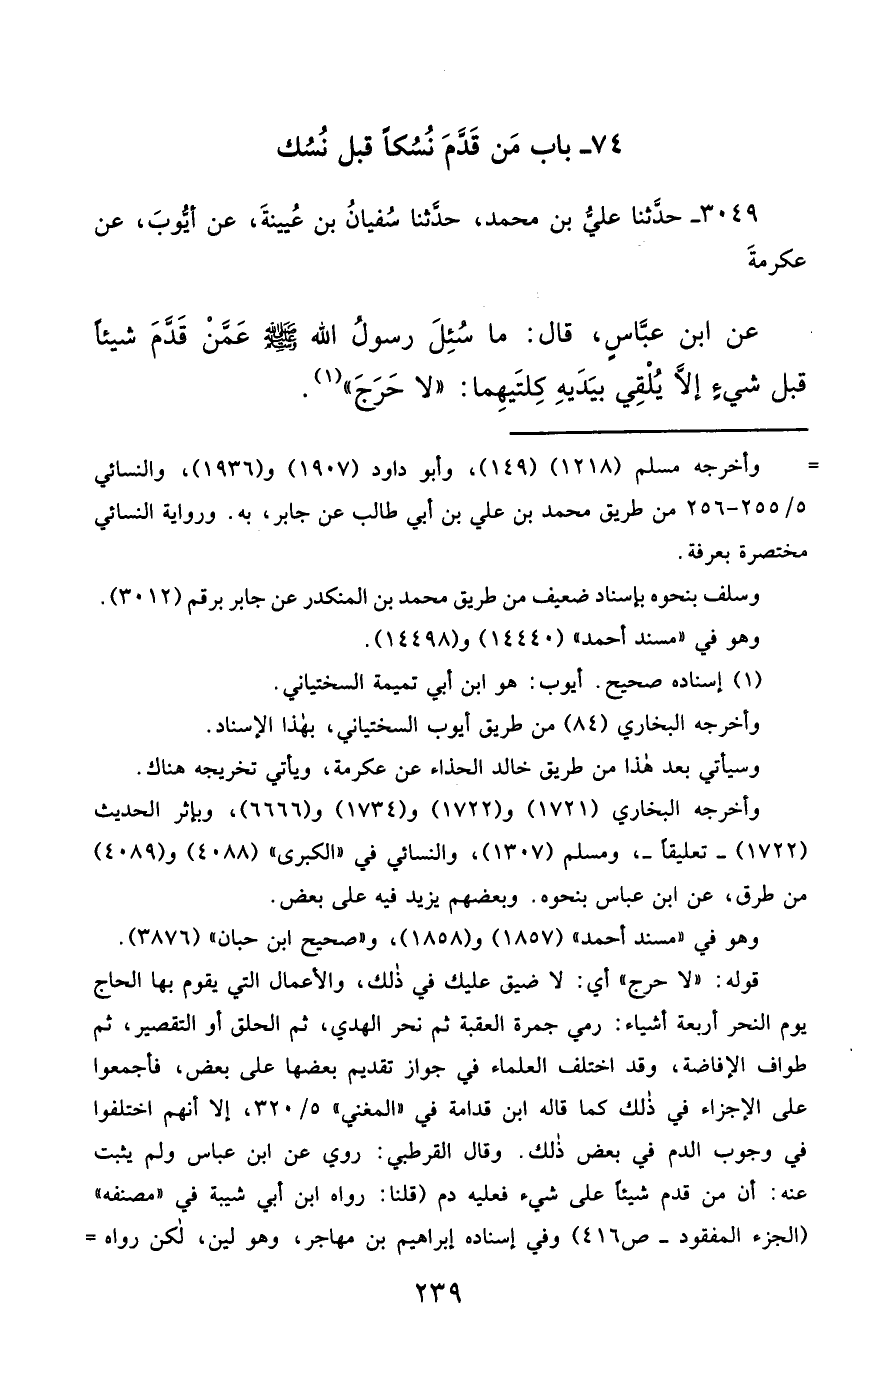 ٧٤ـ باب مَن قَدَّمَ نُسُكاً قبل نُسُك
٣٠٤٩ـ حدَّثنا عليُّ بن محمد، حدَّثنا سُفيانُ بن عُيينةَ، عن أيُّوبَ، عن
عكرمةَ
عن ابن عبَّاسٍ، قال: ما سُئِلَ رسولُ الله ﷺ عَمَّنْ قَدَّمَ شيئاً
قبل شيءٍ إلاَّ يُلْقِي بيَدَيهِ كِلتَيهِما: «لا حَرَجَ»(١).
= وأخرجه مسلم (١٢١٨) (١٤٩)، وأبو داود (١٩٠٧) و(١٩٣٦)، والنسائي
٥/ ٢٥٥-٢٥٦ من طريق محمد بن علي بن أبي طالب عن جابر، به. ورواية النسائي
مختصرة بعرفة.
وسلف بنحوه بإسناد ضعيف من طريق محمد بن المنكدر عن جابر برقم (٣٠١٢).
وهو في «مسند أحمد» (١٤٤٤٠) و(١٤٤٩٨).
(١) إسناده صحيح. أيوب: هو ابن أبي تميمة السختياني.
وأخرجه البخاري (٨٤) من طريق أيوب السختياني، بهٰذا الإسناد.
وسيأتي بعد هٰذا من طريق خالد الحذاء عن عكرمة، ويأتي تخريجه هناك.
وأخرجه البخاري (١٧٢١) و(١٧٢٢) و(١٧٣٤) و(٦٦٦٦)، وبإثر الحديث
(١٧٢٢) ـ تعليقاً ـ، ومسلم (١٣٠٧)، والنسائي في «الكبرى» (٤٠٨٨) و(٤٠٨٩)
من طرق، عن ابن عباس بنحوه. وبعضهم يزيد فيه على بعض.
وهو في «مسند أحمد» (١٨٥٧) و(١٨٥٨)، و«صحيح ابن حبان» (٣٨٧٦).
قوله: «لا حرج» أي: لا ضيق عليك في ذٰلك، والأعمال التي يقوم بها الحاج
يوم النحر أربعة أشياء: رمي جمرة العقبة ثم نحر الهدي، ثم الحلق أو التقصير، ثم
طواف الإفاضة، وقد اختلف العلماء في جواز تقديم بعضها على بعض، فأجمعوا
على الإجزاء في ذٰلك كما قاله ابن قدامة في «المغني» ٥/ ٣٢٠، إلا أنهم اختلفوا
في وجوب الدم في بعض ذٰلك. وقال القرطبي: روي عن ابن عباس ولم يثبت
عنه: أن من قدم شيئاً على شيء فعليه دم (قلنا: رواه ابن أبي شيبة في «مصنفه»
(الجزء المفقود ـ ص٤١٦) وفي إسناده إبراهيم بن مهاجر، وهو لين، لٰكن رواه =
٢٣٩